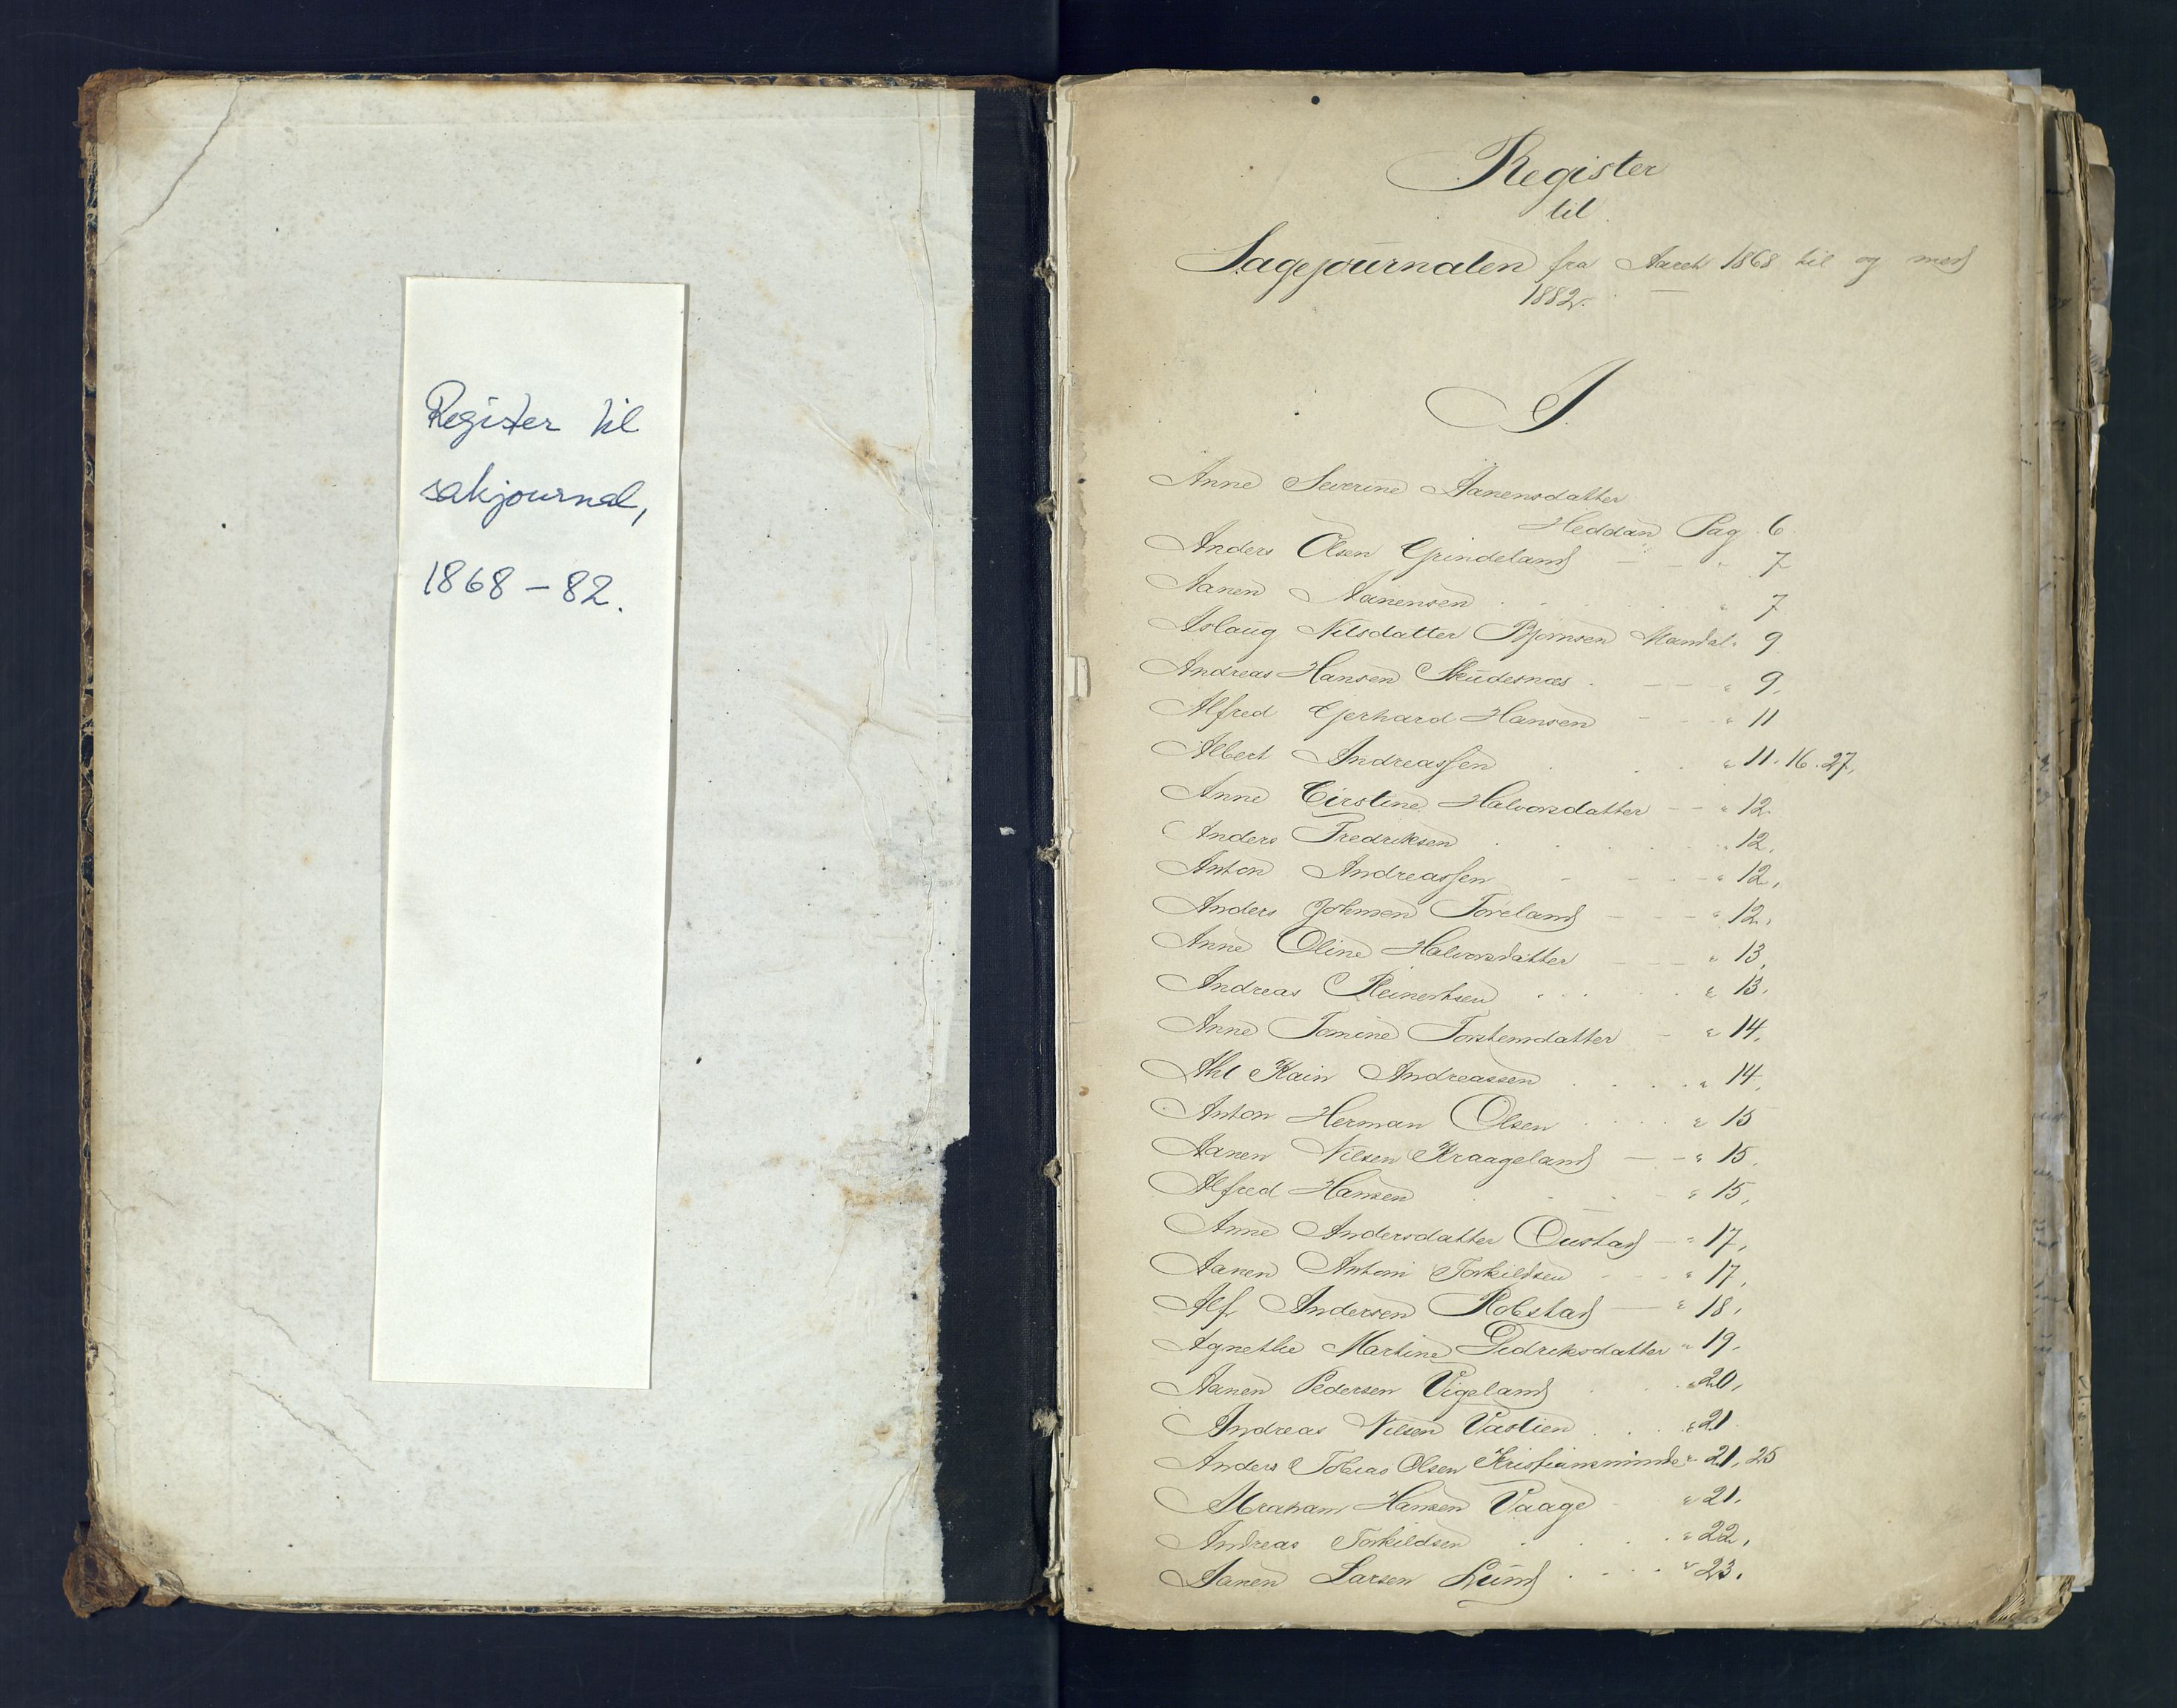 Register til
sakjournal,
1868 – 82.
Register
til
Sagejournalen fra Aaret 1868 til og med
1882.
A.
Anne Severine Aanensdatter
Heddan Pag. 6
Anders Olsen Grindeland - - " 7
Aanen Aanensen . . . " 7
Aslaug Nilsdatter Bjørnsen Mandal " 9
Andreas Hansen Skudesnæs . — — " 9.
Alfred Gerhard Hansen - - " 11
Albert Andreassen . . . " 11. 16. 27.
Anne Cirstine Halvorsdatter — " 12.
Anders Fredriksen . . . " 12.
Anton Andreassen - - - " 12.
Anders Johnsen Foreland - - - " 12.
Anne Oline Halvorsdatter — — " 13.
Andreas Reinertsen . . . " 13.
Anne Tomine Torstensdatter - " 14.
Kain Andreassen . . . . " 14.
Anton Herman Olsen . . . . " 15
Aanen Nilsen Kraageland — — " 15.
Alfred Hansen . . . - " 15.
Anne Andersdatter Oustad — " 17.
Aanen Antoni Torkildsen - - - " 17.
Alf Andersen Robstad — " 18.
Agnethe Martine Didriksdatter " 19.
Aanen Pedersen Vigeland . . " 20.
Andreas Nilsen Vaslien . . . " 21.
Anders Tobias Olsen Kristiansminde " 21, 25
Abraham Hansen Vaage " 21.
Andreas Torkildsen . . . " 22.
Aanen Larsen Lund . . . . " 23.